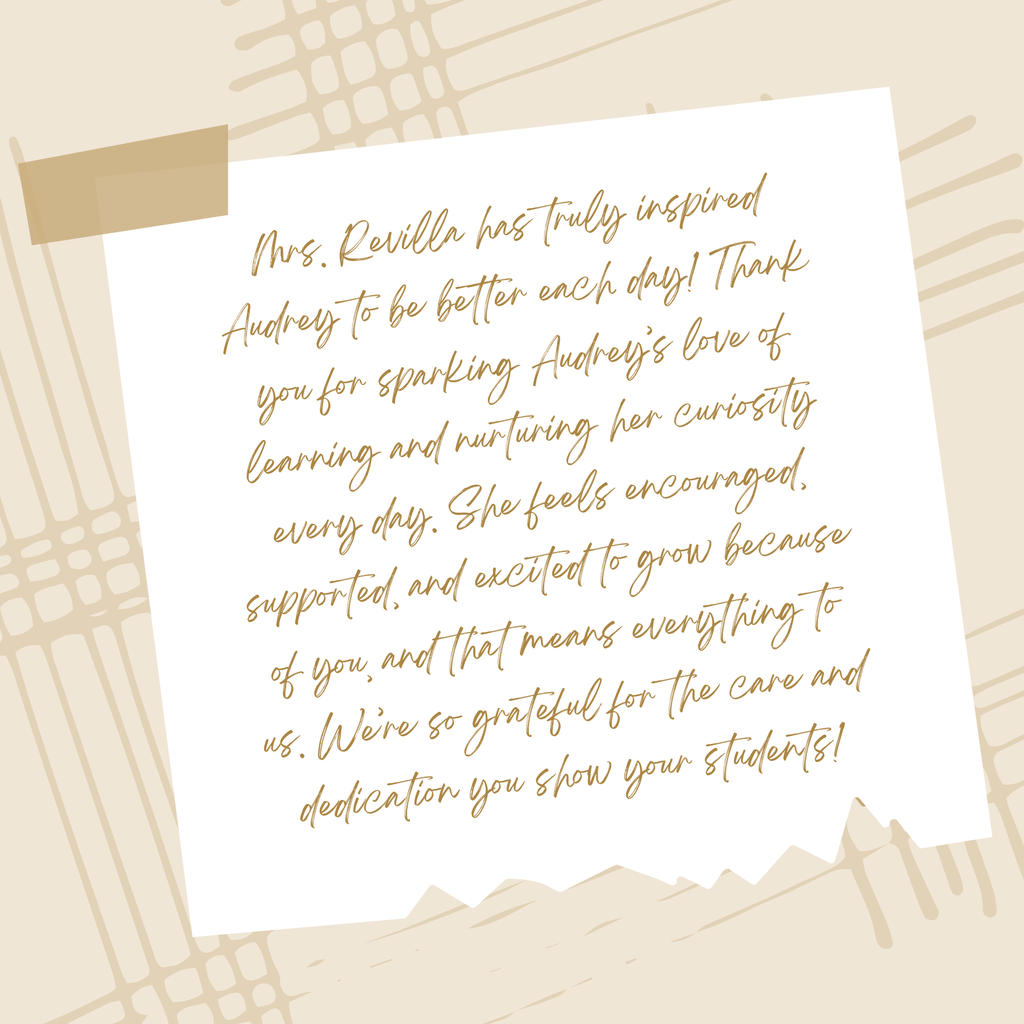 Mrs. Revilla has truly inspired
Audrey to be better each day! Thank
you for sparking Audrey's love of
learning and nurturing her curiosity
every day. She feels encouraged,
supported, and excited to grow because
of you, and that means everything to
us. We're so grateful for the care and
dedication you show your students!